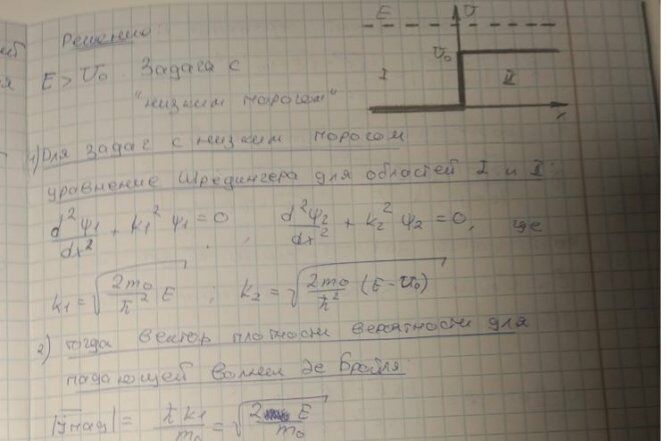 Решение:
E > U₀ Задача с
"низким порогом"
E U
U₀
I II
x
1) Для задач с низким порогом
уравнение Шредингера для областей I и II:
d²ψ₁/dx² + k₁² ψ₁ = 0, d²ψ₂/dx² + k₂² ψ₂ = 0, где
k₁ = √(2m₀/ħ² E) ; k₂ = √(2m₀/ħ² (E - U₀))
2) тогда вектор плотности вероятности для
падающей волны де Бройля:
|j пад| = ħk₁/m₀ = √(2E/m₀)